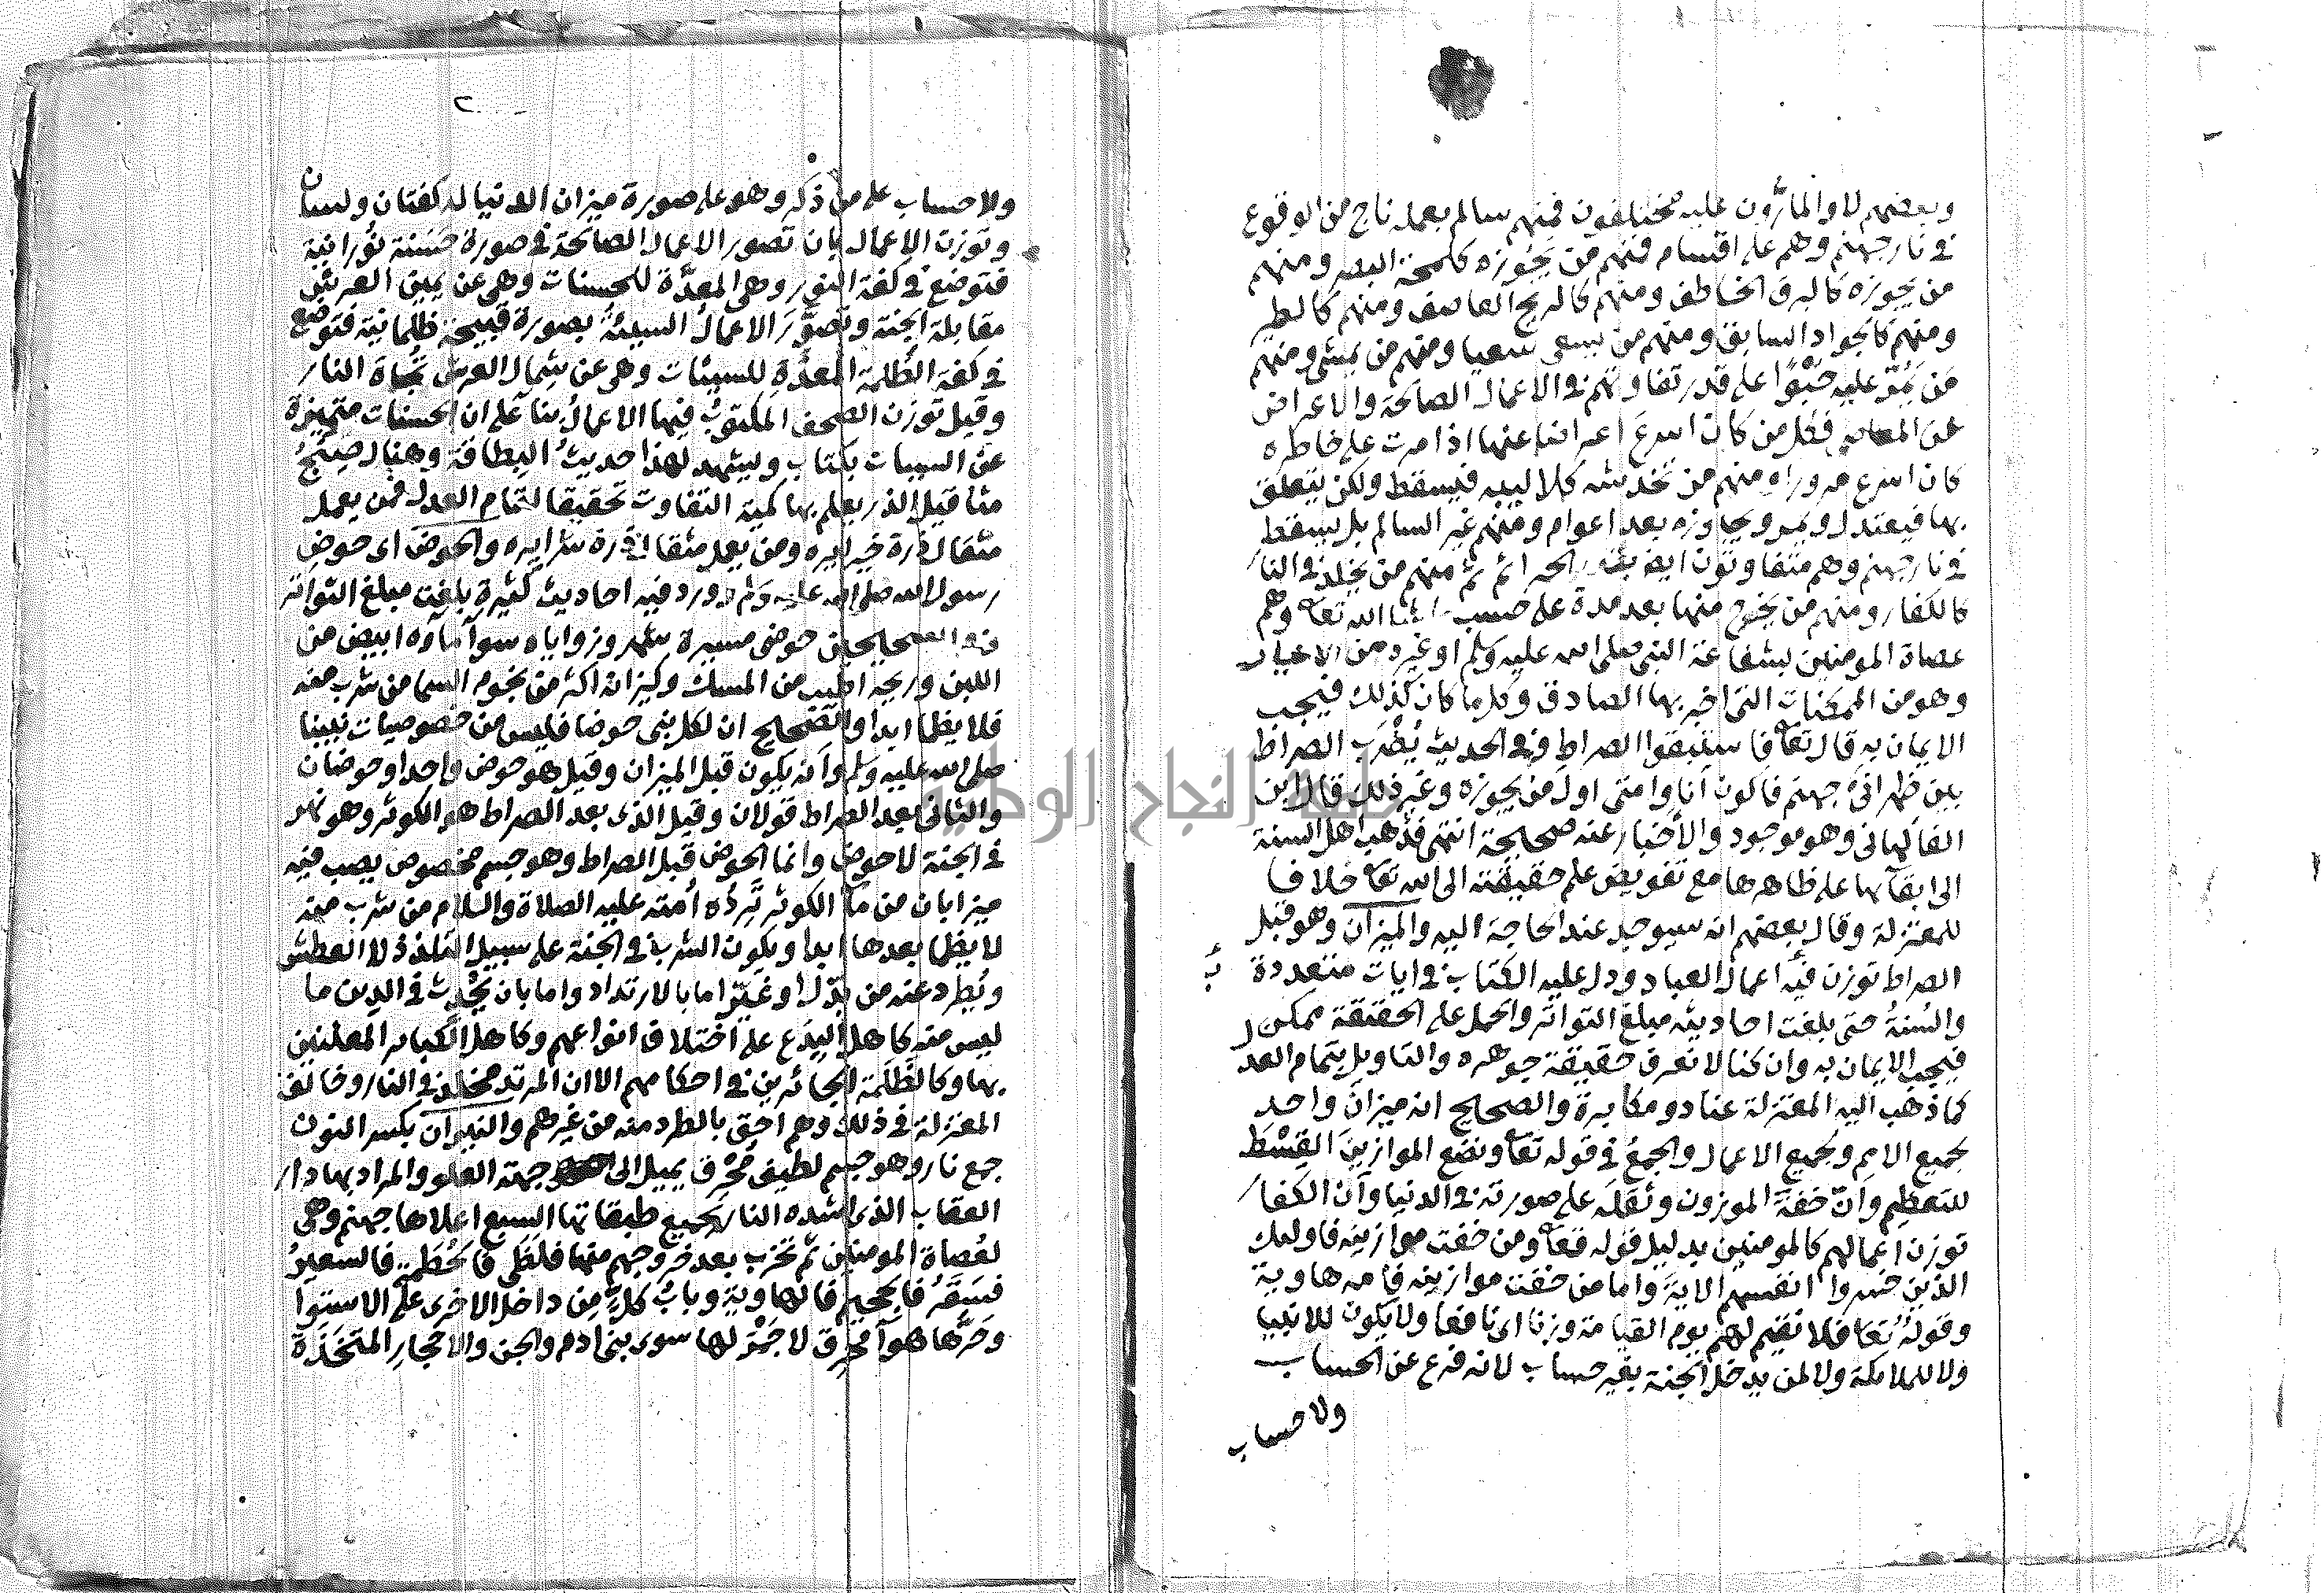 وبعضهم لا والمارّون عليه مختلفون فمنهم سالم بعمله ناج من الوقوع
في نار جهنم وهم على اقسام فمنهم من يجوزه كلمحة البصر ومنهم
من يجوزه كالبرق الخاطف ومنهم كالريح العاصف ومنهم كالطير
ومنهم كالجواد السابق ومنهم من يسعى سعيا ومنهم من يمشى ومنهم
من يمرّ عليه حبوًا على قدر تفاوتهم في الاعمال الصالحة والاعراض
عن المعاصي فكل من كان اسرع اعراضا عنها اذا مرت على خاطره
كان اسرع مرورا ومنهم من تخدشه كلاليبه فيسقط ولكن يتعلق
بها فيعتدل ويمر ويجاوزه بعد اعوام ومنهم غير السالم بل يسقط
في نار جهنم وهم متفاوتون ايضا بقدر الجرائم ثم منهم من يخلد في النار
كالكفار ومنهم من يخرج منها بعد مدة على حسب ما شا الله تعا وهم
عصاة المومنين بشفاعة النبي صلى الله عليه وسلم او غيره من الاخيار
وهو من الممكنات التي اخبر بها الصادق وكل ما كان كذلك فيجب
الايمان به قال تعا فاستبقوا الصراط وفي الحديث يُضْرَب الصراط
بين ظهراني جهنم فاكون انا وامتى اول من يجوزه وغير ذلك قال ابن
الفاكهاني وهو موجود والأخبار عنه صحيحة انتهى فذهب اهل السنة
الى ابقآئها على ظاهرها مع تفويض علم حقيقته الى الله تعا خلافا
للمعتزلة وقال بعضهم انه سيوجد عند الحاجة اليه والميزان وهو قبل
الصراط توزن فيه اعمال العباد ودل عليه الكتاب في ايات متعددة
والسُنةُ حتى بلغت احاديثه مبلغ التواتر والحمل على الحقيقة ممكن
فيجب الايمان به وان كنا لا نعرف حقيقة جوهره والتاويل بتمام العدل
كما ذهب اليه المعتزلة عناد ومكابرة والصحيح انه ميزان واحد
لجميع الامم ولجميع الاعمال والجمعُ في قوله تعا ونضع الموازينَ القِسْطَ
للتعظيم وانّ خفةَ الموزون وثقله على صورته في الدنيا وان الكفار
توزن اعمالهم كالمومنين بدليل قوله تعا ومن خفت موازينه فاوليك
الذين خسروا انفسهم الاية واما من خفت موازينه فامه هاوية
وقولهُ تعا فلا نقيم لهم يوم القيامة وزنا اى نافعا ولا يكون للانبيا
ولا للملايكة ولا لمن يدخل الجنة بغير حساب لانه فرع عن الحساب
ولا حساب
٢
ولا حساب على من ذكر وهو على صورة ميزان الدنيا له كفتان ولسان
وتوزن الاعمال بان تصور الاعمال الصالحة في صورة حَسَنة نُورانية
فتوضع في كفة النور وهى المعدّة للحسنات وهى عن يمين العرش
مقابلة الجنة وتصوّر الاعمالُ السيئةُ بصورة قبيحة ظلمانية فتوضع
في كفة الظُلمة المعدَّةِ للسيئات وهى عن شِمال العرش تجاهَ النار
وقيل توزن الصحف المكتوبُ فيها الاعمالُ بنا على ان الحسنات متميزة
عن السيئات بكتاب ويشهد لهذا حديثُ البِطاقة وهناك صِنَجُ
مثاقيل الذر يعلم بها كمية التفاوت تحقيقا لتمام العدل فمن يعمل
مثقال ذرة خيرا يره ومن يعمل مثقال ذرة شرا يره والحوض اى حوض
رسول الله صلى الله عليه وسلم وورد فيه احاديث كثيرة بلغت مبلغ التواتر
في الصحيحين حوضى مسيرة شهر وزواياه سوآ مآؤه ابيض من
اللبن وريحه اطيب من المسك وكيزانه اكثر من نجوم السما من شرب منه
فلا يظما ابدا والصحيح ان لكل نبى حوضا فليس من خصوصيات نبينا
صلى الله عليه وسلم وانه يكون قبل الميزان وقيل هو حوض واحد او حوضان
والثاني بعد الصراط قولان وقيل الذى بعد الصراط هو الكوثر وهو نهر
في الجنة لا حوض وانما الحوض قبل الصراط وهو جسم مخصوص يصب فيه
ميزابان من مآ الكوثر تَرِدُه اُمته عليه الصلاة والسلام من شرب منه
لا يظما بعدها ابدا ويكون الشرب في الجنة على سبيل التلذذ لا العطش
ويُطرد عنه من بدّل او غيّر اما بالارتداد واما بان يُحْدِث في الدين ما
ليس منه كاهل البِدَع على اختلاف انواعهم وكاهل الكبائر المعلنين
بها وكالظَلَمة الجائرين في احكامهم الا ان المرتد مخلد في النار وخالف
المعتزلة في ذلك وهم احق بالطرد منه من غيرهم والنيران بكسر النون
جمع نار وهو جسم لطيف مُحْرِق يميل الى جهة العلو والمراد بها دار
العقاب الذى اشده النار بجميع طبقاتها السبع اعلاها جهنم وهى
لعُصاة المومنين ثم تخرب بعد خروجهم منها فلظَى فالحُطَمة فالسعيرُ
فسَقَرُ فالجحيم فالهاوية وبابُ كلٍّ مِن داخل الاخرى على الاستوا
وحَرُّها هوآ محرق لا جَمْرَ لها سوى بنى ادم والجن والاحجارِ المتخَذة
جامعة النجاح الوطنية